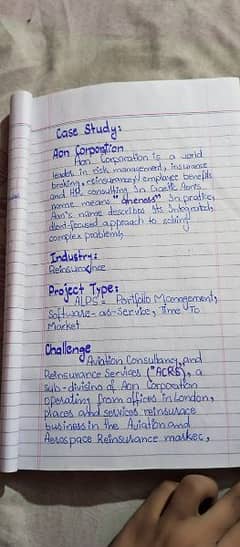 Case Study:
Aon Corporation
Aon Corporation is a world
leader in risk management, insurance
broking, reinsurance/employee benefits
and HR consulting. In Gaelic Aon's
name means "Oneness" In pratice,
Aon's name describes its integrated,
client-focused approach to solving
complex problems,
Industry:
Reinsurance
Project Type:
ALPS - Portfolio Management,
Software-as-Service, Time To
Market
Challenge
Aviation Consultancy and
Reinsurance Services ("ACRS), a
sub-division of Aon Corporation
operating from offices in London,
places and services reinsurace
business in the Aviation and
Aerospace Reinsurance market,